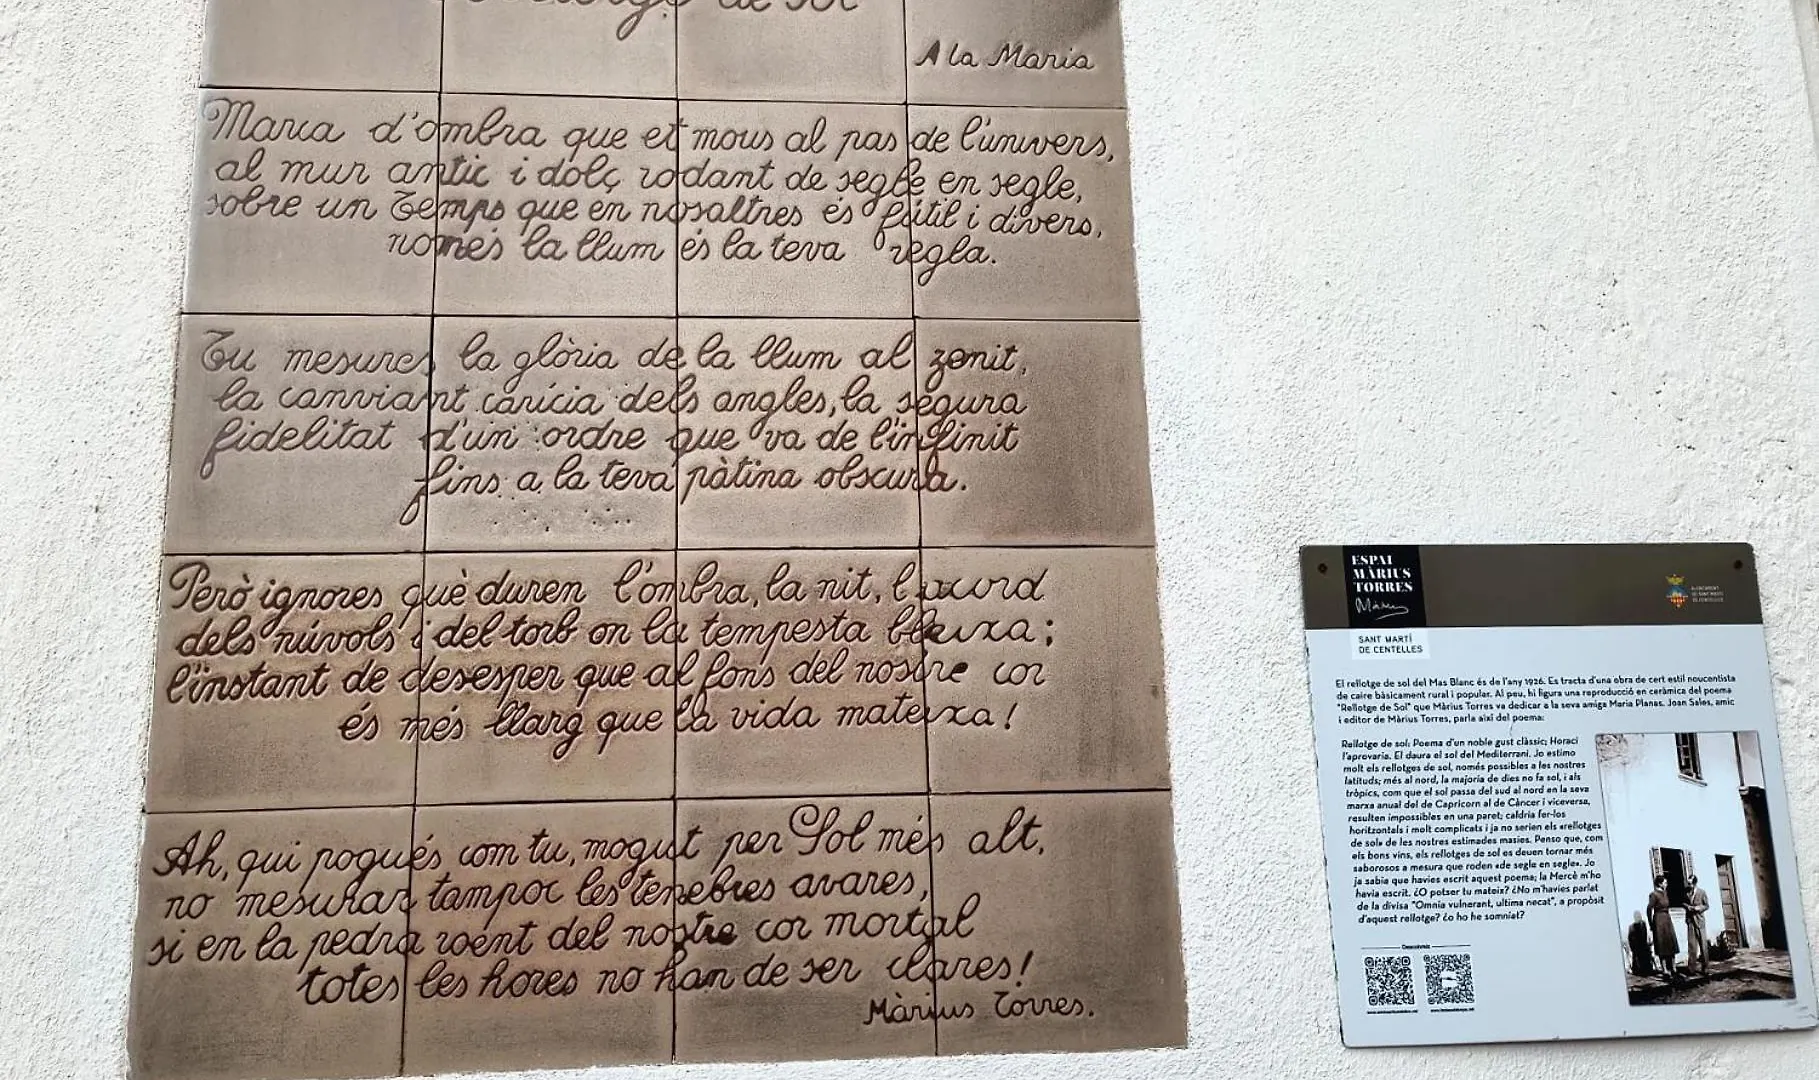 de sol
A la Maria
Marca d'ombra que et mous al pas de l'univers,
al mur antic i dolç rodant de segle en segle,
sobre un Temps que en nosaltres és fútil i divers,
només la llum és la teva regla.
Tu mesures la glòria de la llum al zenit,
la canviant carícia dels angles, la segura
fidelitat d'un ordre que va de l'infinit
fins a la teva pàtina obscura.
Però ignores què duren l'ombra, la nit, l'acord
dels núvols i del torb on la tempesta bleixa;
l'instant de desesper que al fons del nostre cor
és més llarg que la vida mateixa!
Ah, qui pogués com tu, mogut per Sol més alt,
no mesurar tampoc les tenebres avares,
si en la pedra roent del nostre cor mortal
totes les hores no han de ser clares!
Màrius Torres.
ESPAI
MÀRIUS
TORRES
SANT MARTÍ
DE CENTELLES
El rellotge de sol del Mas Blanc és de l'any 1926. Es tracta d'una obra de cert estil noucentista
de caire bàsicament rural i popular. Al peu, hi figura una reproducció en ceràmica del poema
"Rellotge de Sol" que Màrius Torres va dedicar a la seva amiga Maria Planas. Joan Sales, amic
i editor de Màrius Torres, parla així del poema:
Rellotge de sol: Poema d'un noble gust clàssic; Horaci
l'aprovaria. El daura el sol del Mediterrani. Jo estimo
molt els rellotges de sol, només possibles a les nostres
latituds; més al nord, la majoria de dies no fa sol, i als
tròpics, com que el sol passa del sud al nord en la seva
marxa anual del de Capricorn al de Càncer i viceversa,
resulten impossibles en una paret; caldria fer-los
horitzontals i molt complicats i ja no serien els «rellotges
de sol» de les nostres estimades masies. Penso que, com
els bons vins, els rellotges de sol es deuen tornar més
saborosos a mesura que roden «de segle en segle». Jo
ja sabia que havies escrit aquest poema; la Mercè m'ho
havia escrit. ¿O potser tu mateix? ¿No m'havies parlat
de la divisa "Omnia vulnerant, ultima necat", a propòsit
d'aquest rellotge? ¿o ho he somniat?